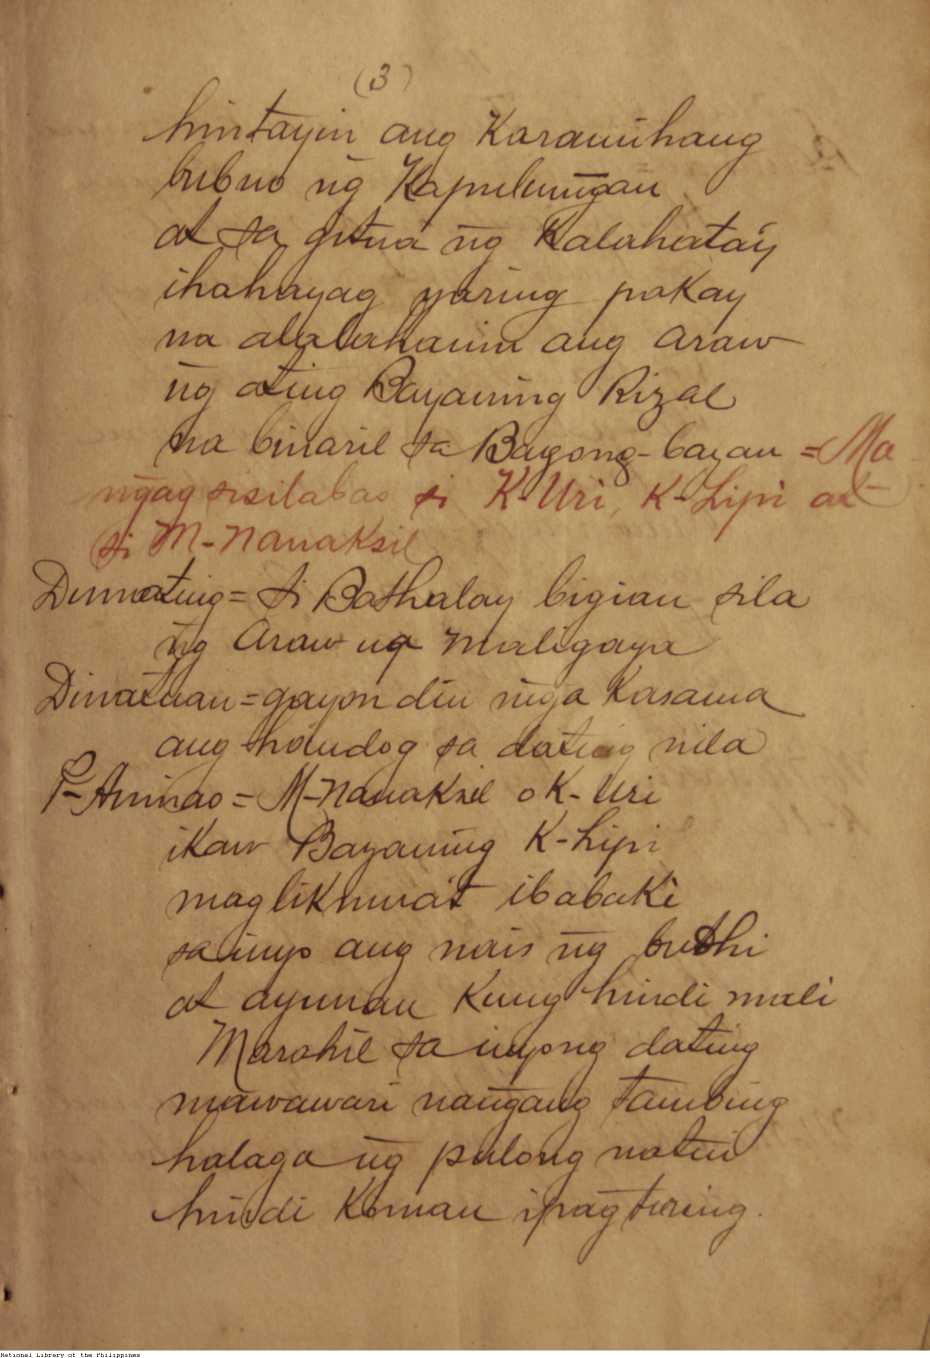 (3)
hintayin ang Karamihang
bubuo ng̃ Kapulung̃an
at sa gitna ng̃ Kalahatáy
ihahayag yaring pakay
na alalahanin ang araw
ng̃ ating Bayaning Rizal
na binaril sa Bagong-bayan = Ma
ng̃agsisilabas si K-Uri, K-Lipi at
si M-Nanaksil
Dumating = Si Bathalay bigian sila
ng̃ Araw na maligaya
Dinatnan = gayon din ng̃a Kasama
ang handog sa dating nila
P-Aninao = M-Nanaksil o K-Uri
ikaw Bayaning K-Lipi
maglikmuát ibabaki
sa inyo ang nais ng̃ buthi
at ayunan Kung hindi mali
Marahil sa inyong dating
mawawari nang̃ang tambing
halaga ng̃ pulong natin
hindi Koman ipagturing.
National Library of the Philippines